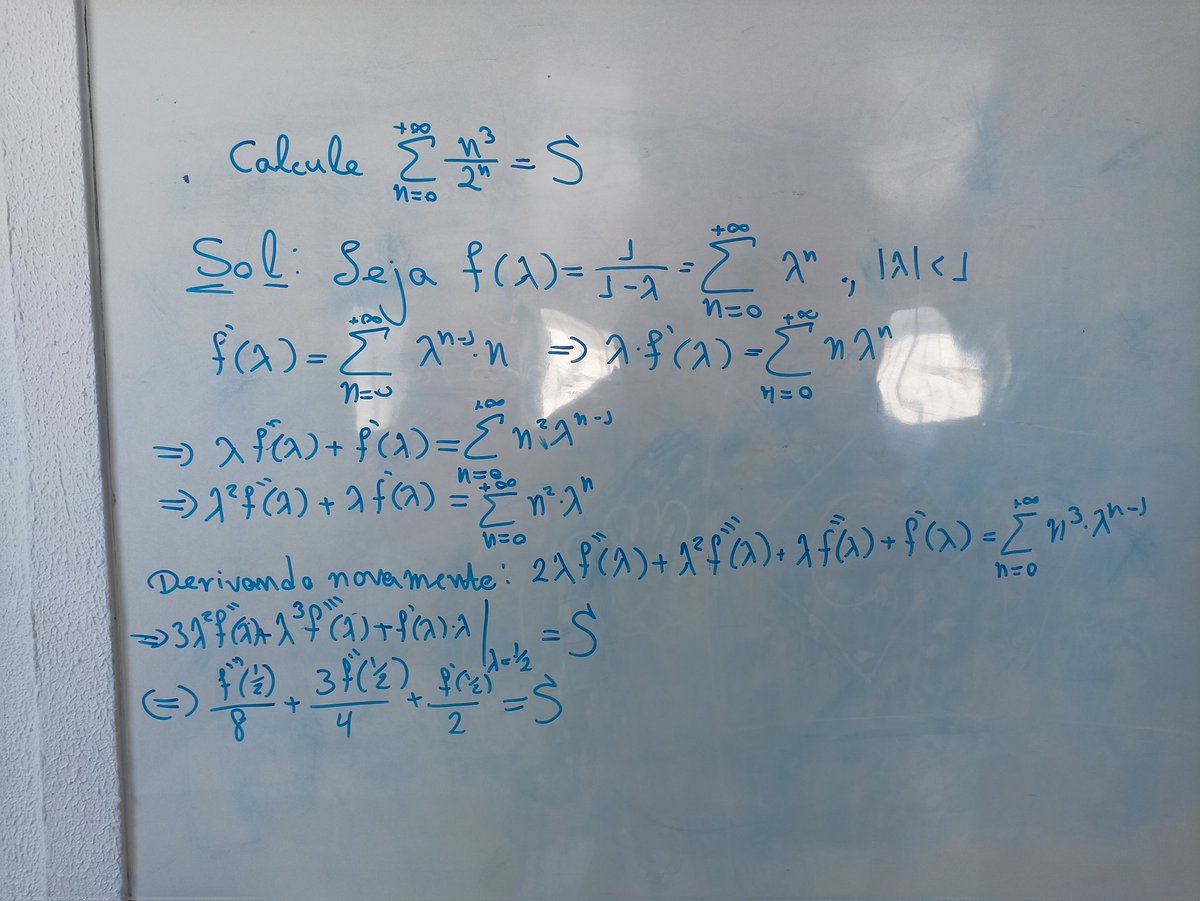 Calcule \sum_{n=0}^{+\infty} \frac{n^3}{2^n} = S
Sol: Seja f(λ) = \frac{1}{1-λ} = \sum_{n=0}^{+\infty} λ^n ., |λ| < 1
f'(λ) = \sum_{n=0}^{+\infty} λ^{n-1}·n ⇒ λ·f'(λ) = \sum_{n=0}^{+\infty} n λ^n
⇒ λ f''(λ) + f'(λ) = \sum_{n=0}^{+\infty} n^2·λ^{n-1}
⇒ λ^2 f''(λ) + λ f'(λ) = \sum_{n=0}^{+\infty} n^2·λ^n
Derivando novamente: 2λ f''(λ) + λ^2 f'''(λ) + λ f''(λ) + f'(λ) = \sum_{n=0}^{+\infty} n^3·λ^{n-1}
⇒ 3λ^2 f''(λ) + λ^3 f'''(λ) + f'(λ)·λ |_{λ=1/2} = S
(=) \frac{f'''(1/2)}{8} + \frac{3f''(1/2)}{4} + \frac{f'(1/2)}{2} = S